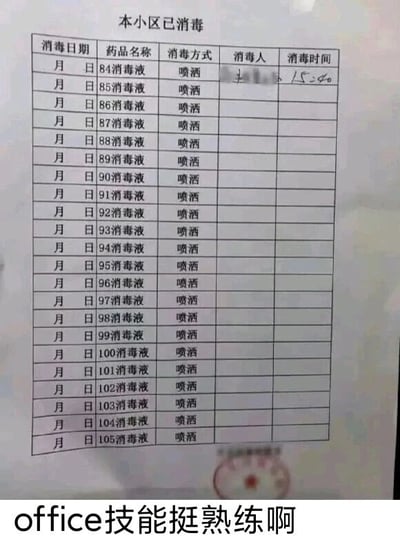 本小区已消毒
消毒日期 药品名称 消毒方式 消毒人 消毒时间
月 日 84消毒液 喷洒 15:40
月 日 85消毒液 喷洒
月 日 86消毒液 喷洒
月 日 87消毒液 喷洒
月 日 88消毒液 喷洒
月 日 89消毒液 喷洒
月 日 90消毒液 喷洒
月 日 91消毒液 喷洒
月 日 92消毒液 喷洒
月 日 93消毒液 喷洒
月 日 94消毒液 喷洒
月 日 95消毒液 喷洒
月 日 96消毒液 喷洒
月 日 97消毒液 喷洒
月 日 98消毒液 喷洒
月 日 99消毒液 喷洒
月 日 100消毒液 喷洒
月 日 101消毒液 喷洒
月 日 102消毒液 喷洒
月 日 103消毒液 喷洒
月 日 104消毒液 喷洒
月 日 105消毒液 喷洒
office技能挺熟练啊